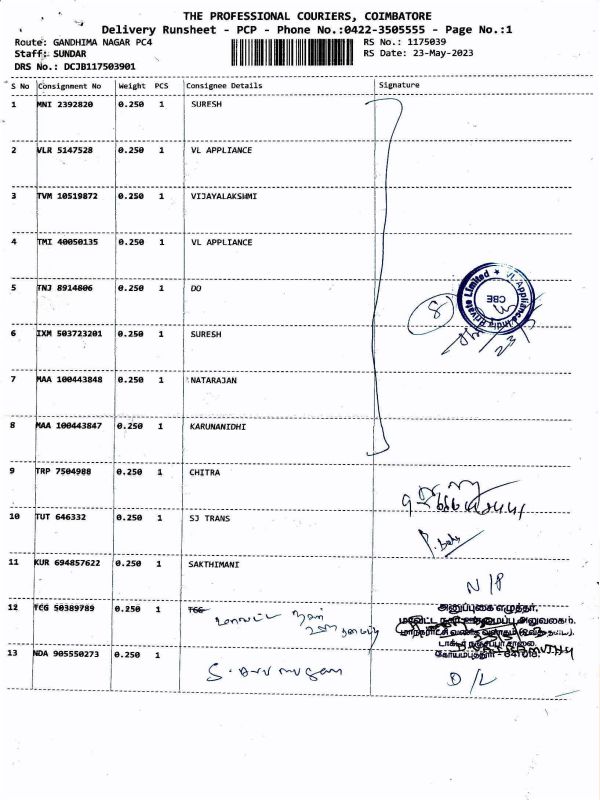 THE PROFESSIONAL COURIERS, COIMBATORE
Delivery Runsheet - PCP - Phone No.:0422-3505555 - Page No.:1
Route: GANDHIMA NAGAR PC4 RS No.: 1175039
Staff: SUNDAR RS Date: 23-May-2023
DRS No.: DCJB117503901
S No Consignment No Weight PCS Consignee Details Signature
1 MNI 2392820 0.250 1 SURESH
2 VLR 5147528 0.250 1 VL APPLIANCE
3 TVM 10519872 0.250 1 VIJAYALAKSHMI
4 TMI 40050135 0.250 1 VL APPLIANCE
5 TNJ 8914806 0.250 1 DO
8
VL Appliance India Private Limited ★ CBE
6 IXM 503723201 0.250 1 SURESH
7 MAA 100443848 0.250 1 NATARAJAN
8 MAA 100443847 0.250 1 KARUNANIDHI
9 TRP 7504988 0.250 1 CHITRA
10 TUT 646332 0.250 1 SJ TRANS
11 KUR 694857622 0.250 1 SAKTHIMANI
N/P
12 TCG 50389789 0.250 1 TCG
அனுப்புகை எழுத்தர்,
13 NDA 905550273 0.250 1
S. Arumugam
D/L